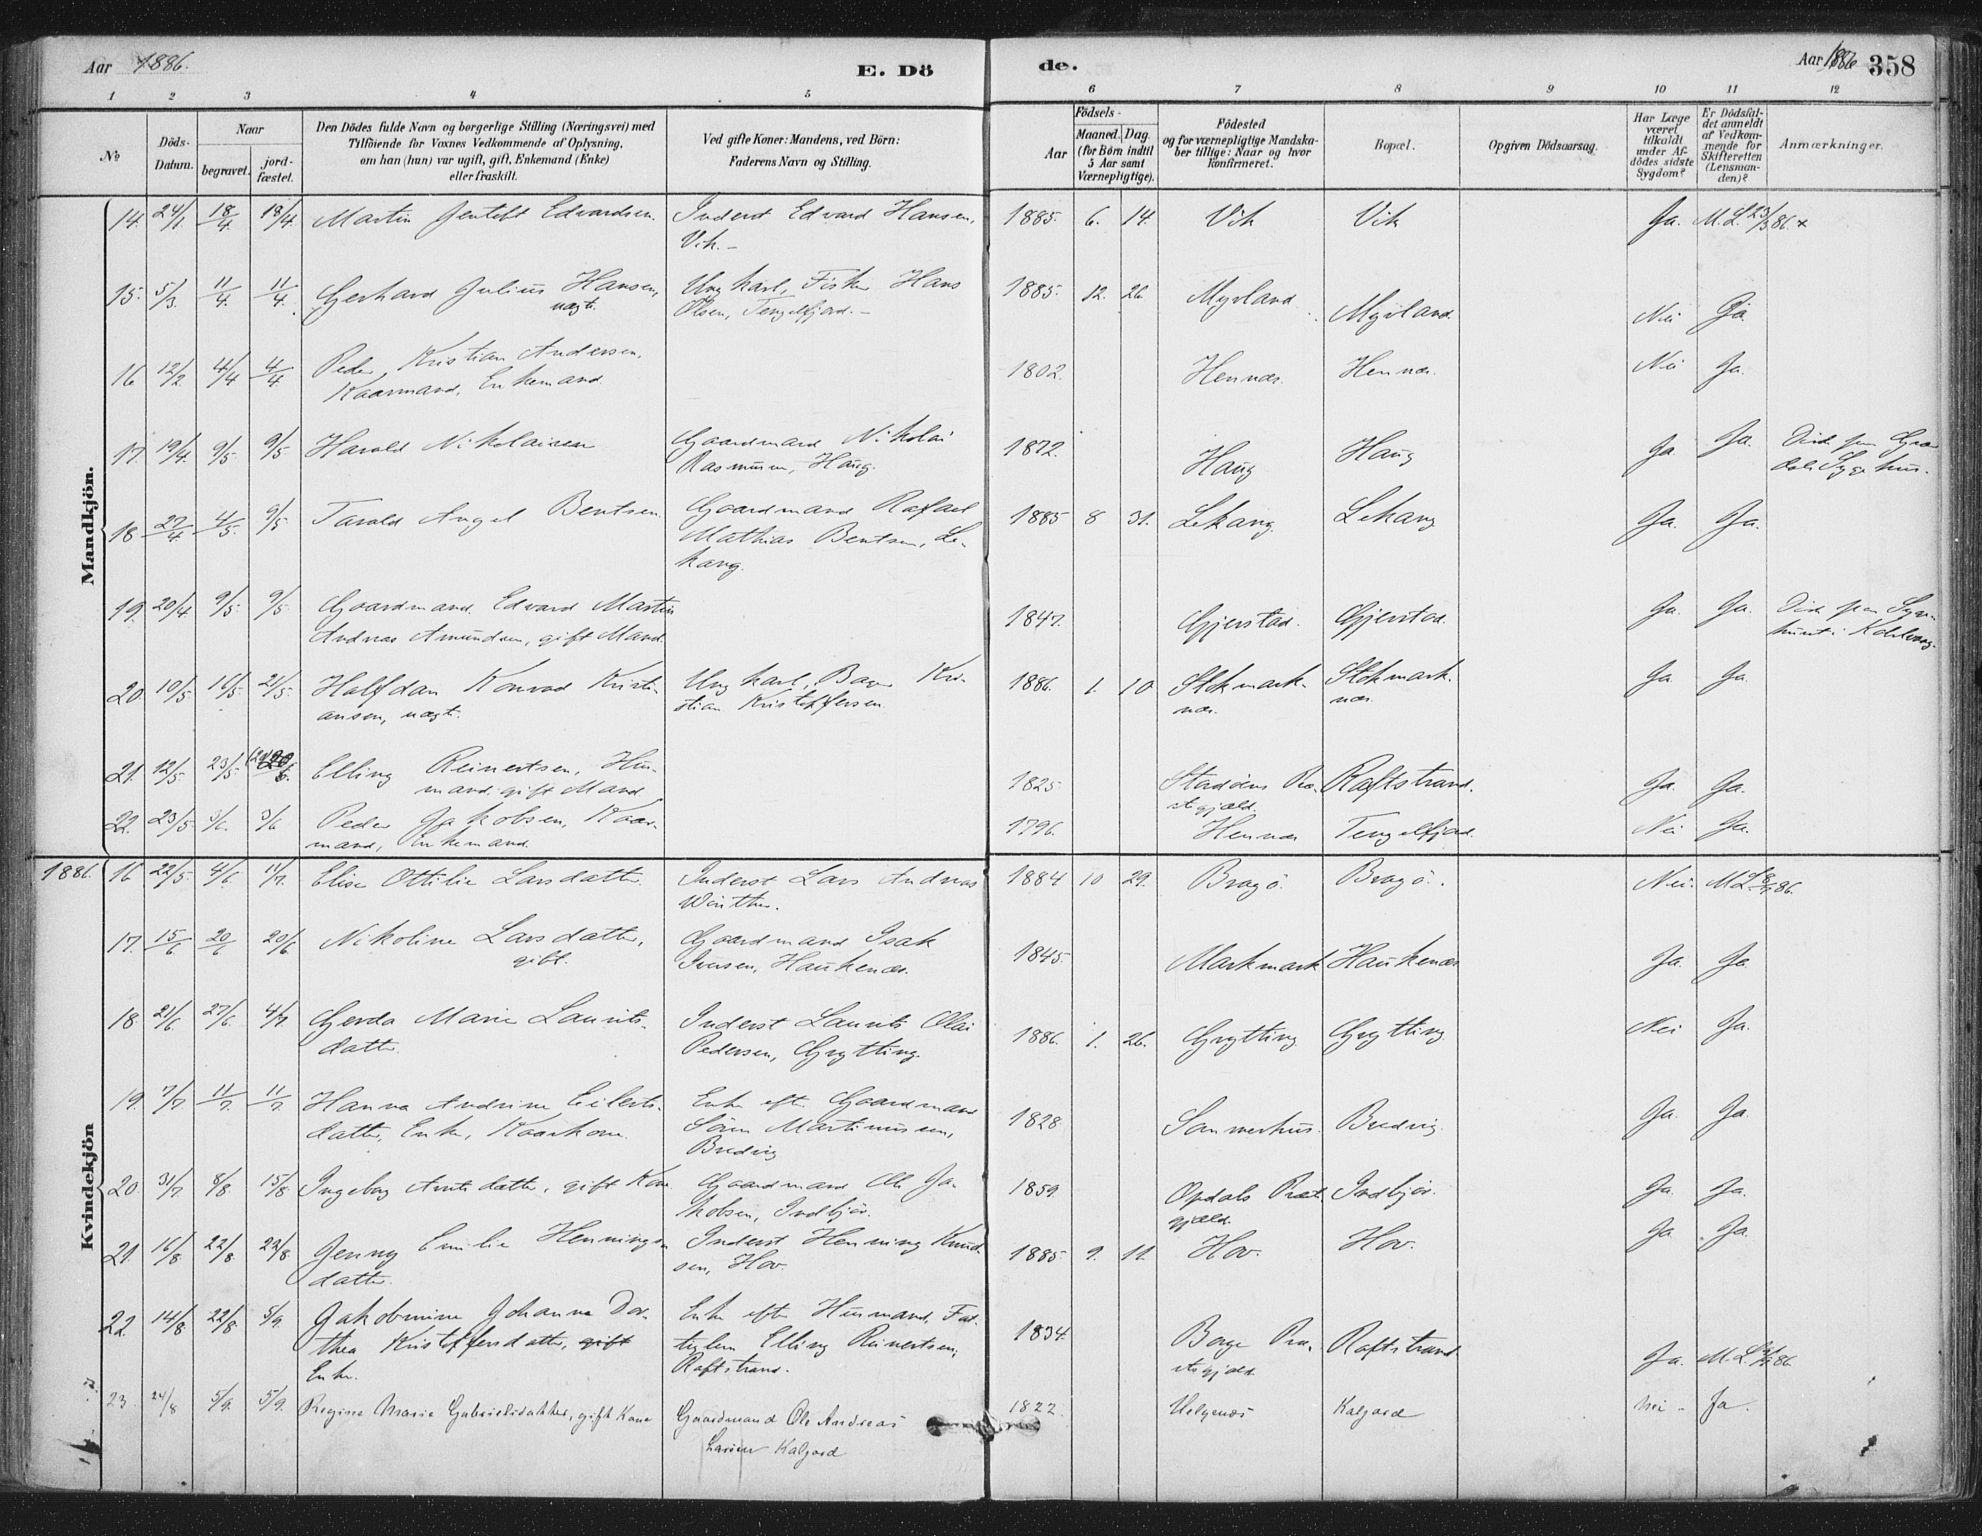 Aar 1886.
E. Dö
de.
Aar 1886
358
1 2 3 4 5 6 7 8 9 10 11 12
No
Döds-
Datum.
Naar
begravet.
jord-
fæstet.
Den Dödes fulde Navn og borgerlige Stilling (Næringsvei) med
Tilföiende for Voxnes Vedkommende af Oplysning,
om han (hun) var ugift, gift, Enkemand (Enke)
eller fraskilt.
Ved gifte Koner: Mandens, ved Börn:
Faderens Navn og Stilling.
Födsels-
Aar
Maaned. Dag.
(for Børn indtil
5 Aar samt
Værnepligtige).
Födested
og for værnepligtige Mandska-
ber tillige: Naar og hvor
konfirmeret.
Bopæl.
Opgiven Dödsaarsag.
Har Læge
været
tilkaldt
under Af-
dödes sidste
Sygdom?
Er Dödsfal-
det anmeldt
af Vedkom-
mende for
Skifteretten
(Lensman-
den)?
Anmærkninger.
Mandkjön.
14. 24/1. 18/4 18/4. Martin Jentoft Edvardsen. Inderst Edvard Hansen, 1885. 6. 14. Vik Vik Ja. M.L. 23/3 86. +
Vik. –
15. 5/3. 11/4. 11/4. Gerhard Julius Hansen, Ungkarl, Fisker Hans 1885. 12. 26. Myrland Myrland. Nei Ja.
uægte. Olsen, Tengelfjord. –
16 12/2 4/4 4/4 Peder Kristian Andersen, 1802. Hennæs. Hennæs. Nei Ja.
Kaarmand, Enkemand.
17. 19/4. 9/5. 9/5 Harald Nikolaisen Gaardmand Nikolai 1872. Haug Haug Ja Ja.
Rasmussen, Haug.
18 27/4 4/5. 9/5 Tarald Angel Bentsen. Gaardmand Rafael 1885 8 31. Lekang. Lekang Ja. Ja.
Mathias Bentsen, Le-
kang.
19. 20/4 9/5 9/5 Gaardmand Edvard Martin 1847. Gjerstad. Gjerstad. Ja. Ja.
Andreas Amundsen, gift Mand.
20 10/5 16/5. 21/5. Halfdan Konrad Kristi- Ungkarl, Bager Kri- 1886. 1. 10 Stokmark- Stokmark- Ja. Ja.
ansen, uægte. stian Kristoffersen næs. næs.
21. 12/5. 23/5. Elling Reinertsen, Hus- 1825. Raftstrand. Ja. Ja.
mand, gift Mand
22. 23/5. 3/6. 3/6 Peder Jakobsen, Kaar- 1796. Hennæs Tengelfjord. Nei Ja.
mand, Enkemand.
Kvindekjön
1886. 16 22/5 4/6 11/7. Elise Ottilie Larsdatter. Inderst Lars Andreas 1884 10 29. Bragö. Bragö. Nei. M.L. 86.
Winther.
17. 15/6 20/6 20/6 Nikoline Larsdatter, Gaardmand Isak 1845. Markmark Haukenæs Ja. Ja.
gift. Iversen, Haukenæs.
18 21/6 27/6. 4/7. Gerda Marie Laurits- Inderst Laurits Olai 1886. 1. 26. Grytting. Grytting. Nei Ja.
datter. Pedersen, Grytting.
19. 7/7 11/7. 11/7 Hanna Andrine Eilerts- Enke efter Gaardmand 1828. Sommerhus. Bredvig. Ja. Ja.
datter, Enke, Kaarkone. Sören Martinussen,
Bredvig
20. 31/7. 8/8 15/8 Ingeborg datter, gift Kone Gaardmand Ole Ja- 1859. Opdals Præste- Indbjör. Ja. Ja.
kobsen, Indbjör. gjæld.
21. 16/8 22/8 22/8 Jenny Emilie Hennings- Inderst Henning Knud- 1885. 9. 11. Hov. Hov. Ja. Ja.
datter. sen, Hov.
22. 14/8 22/8. 5/9. Jakobmine Johanna Dor- Enke efter Husmand, Fat- 1834. Borge Præ- Raftstrand. Ja. M.L. 86.
thea Kristoffersdatter, gift Elling Reinertsen, stegjæld.
Enke. Raftstrand.
23 24/8 5/9. 5/9. Regine Marie Gabrielsdatter, gift Kone Gaardmand Ole Andreas 1822. Helgenæs Kalgard Nei – Ja.
Larsen Kalgard